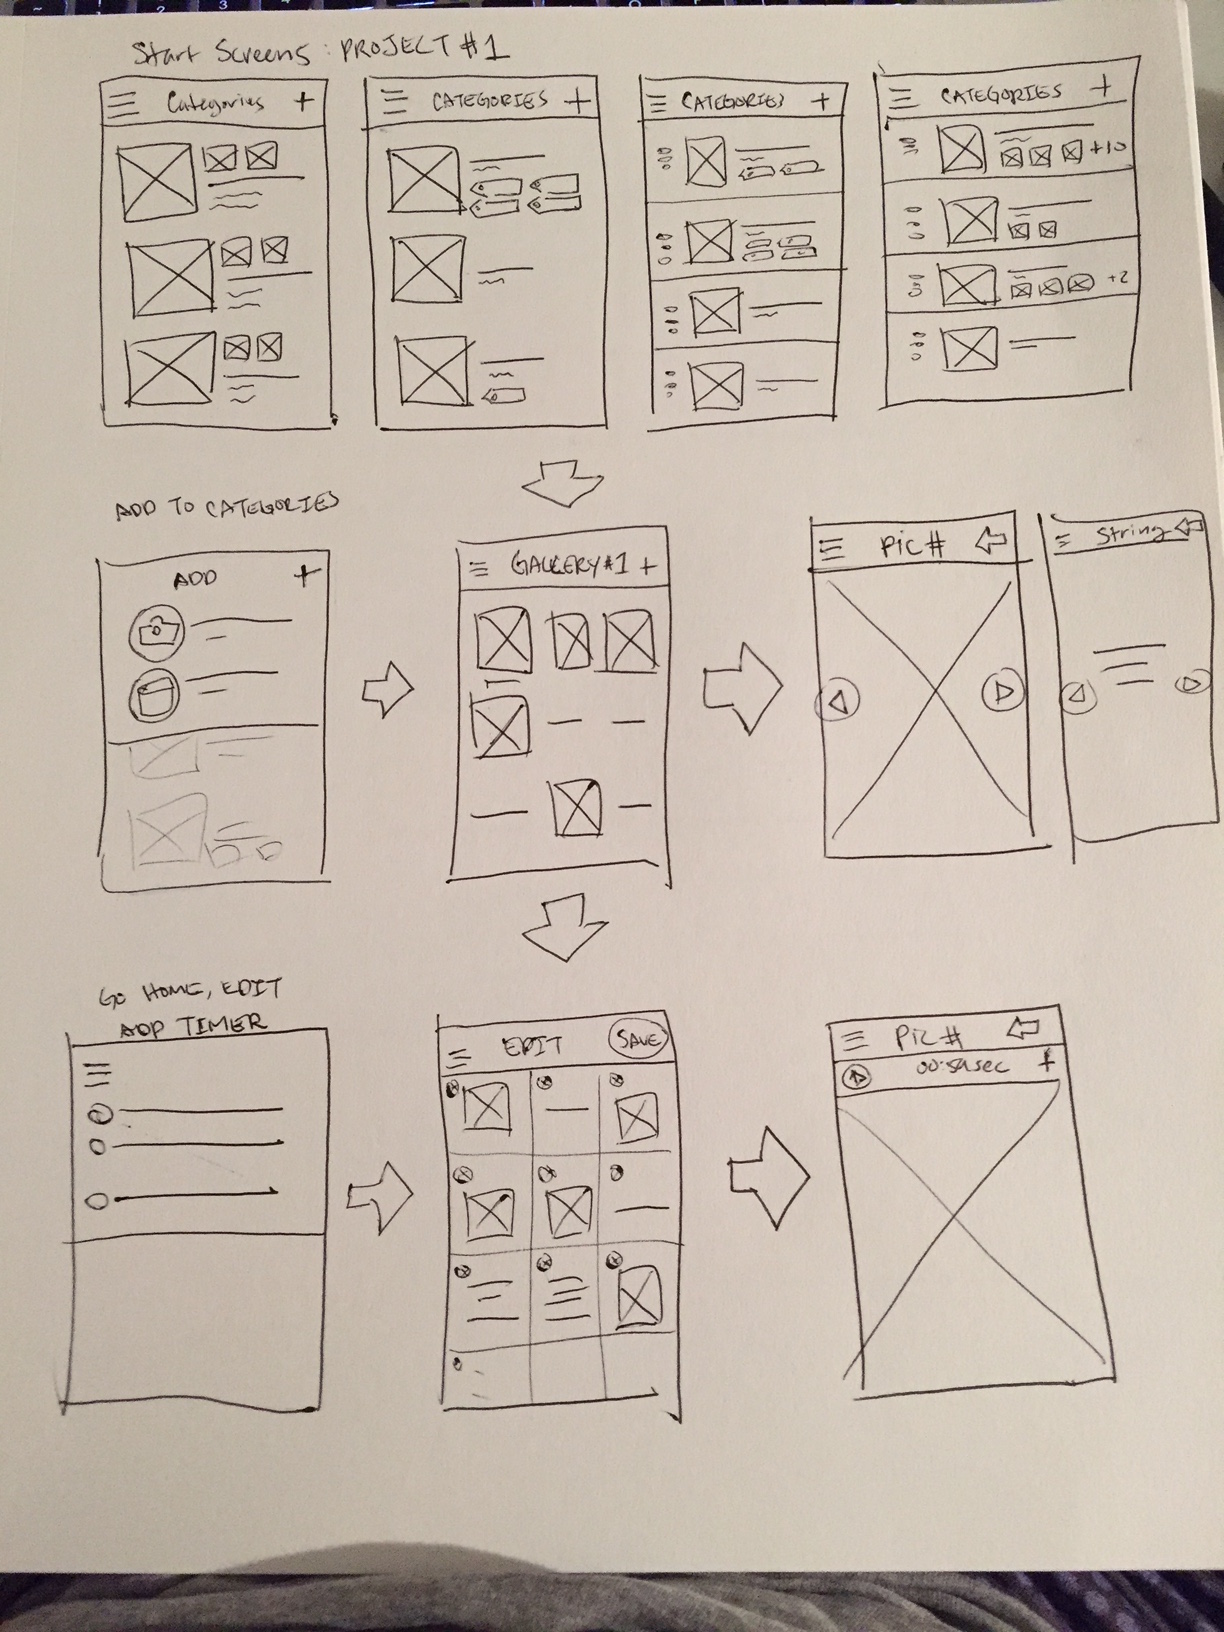 Start Screens: PROJECT #1
Categories +
CATEGORIES +
CATEGORIES +
CATEGORIES +
+10
+2
ADD TO CATEGORIES
ADD +
GALLERY #1 +
Pic #
String
GO HOME, EDIT
ADD TIMER
EDIT SAVE
Pic #
00:59sec +